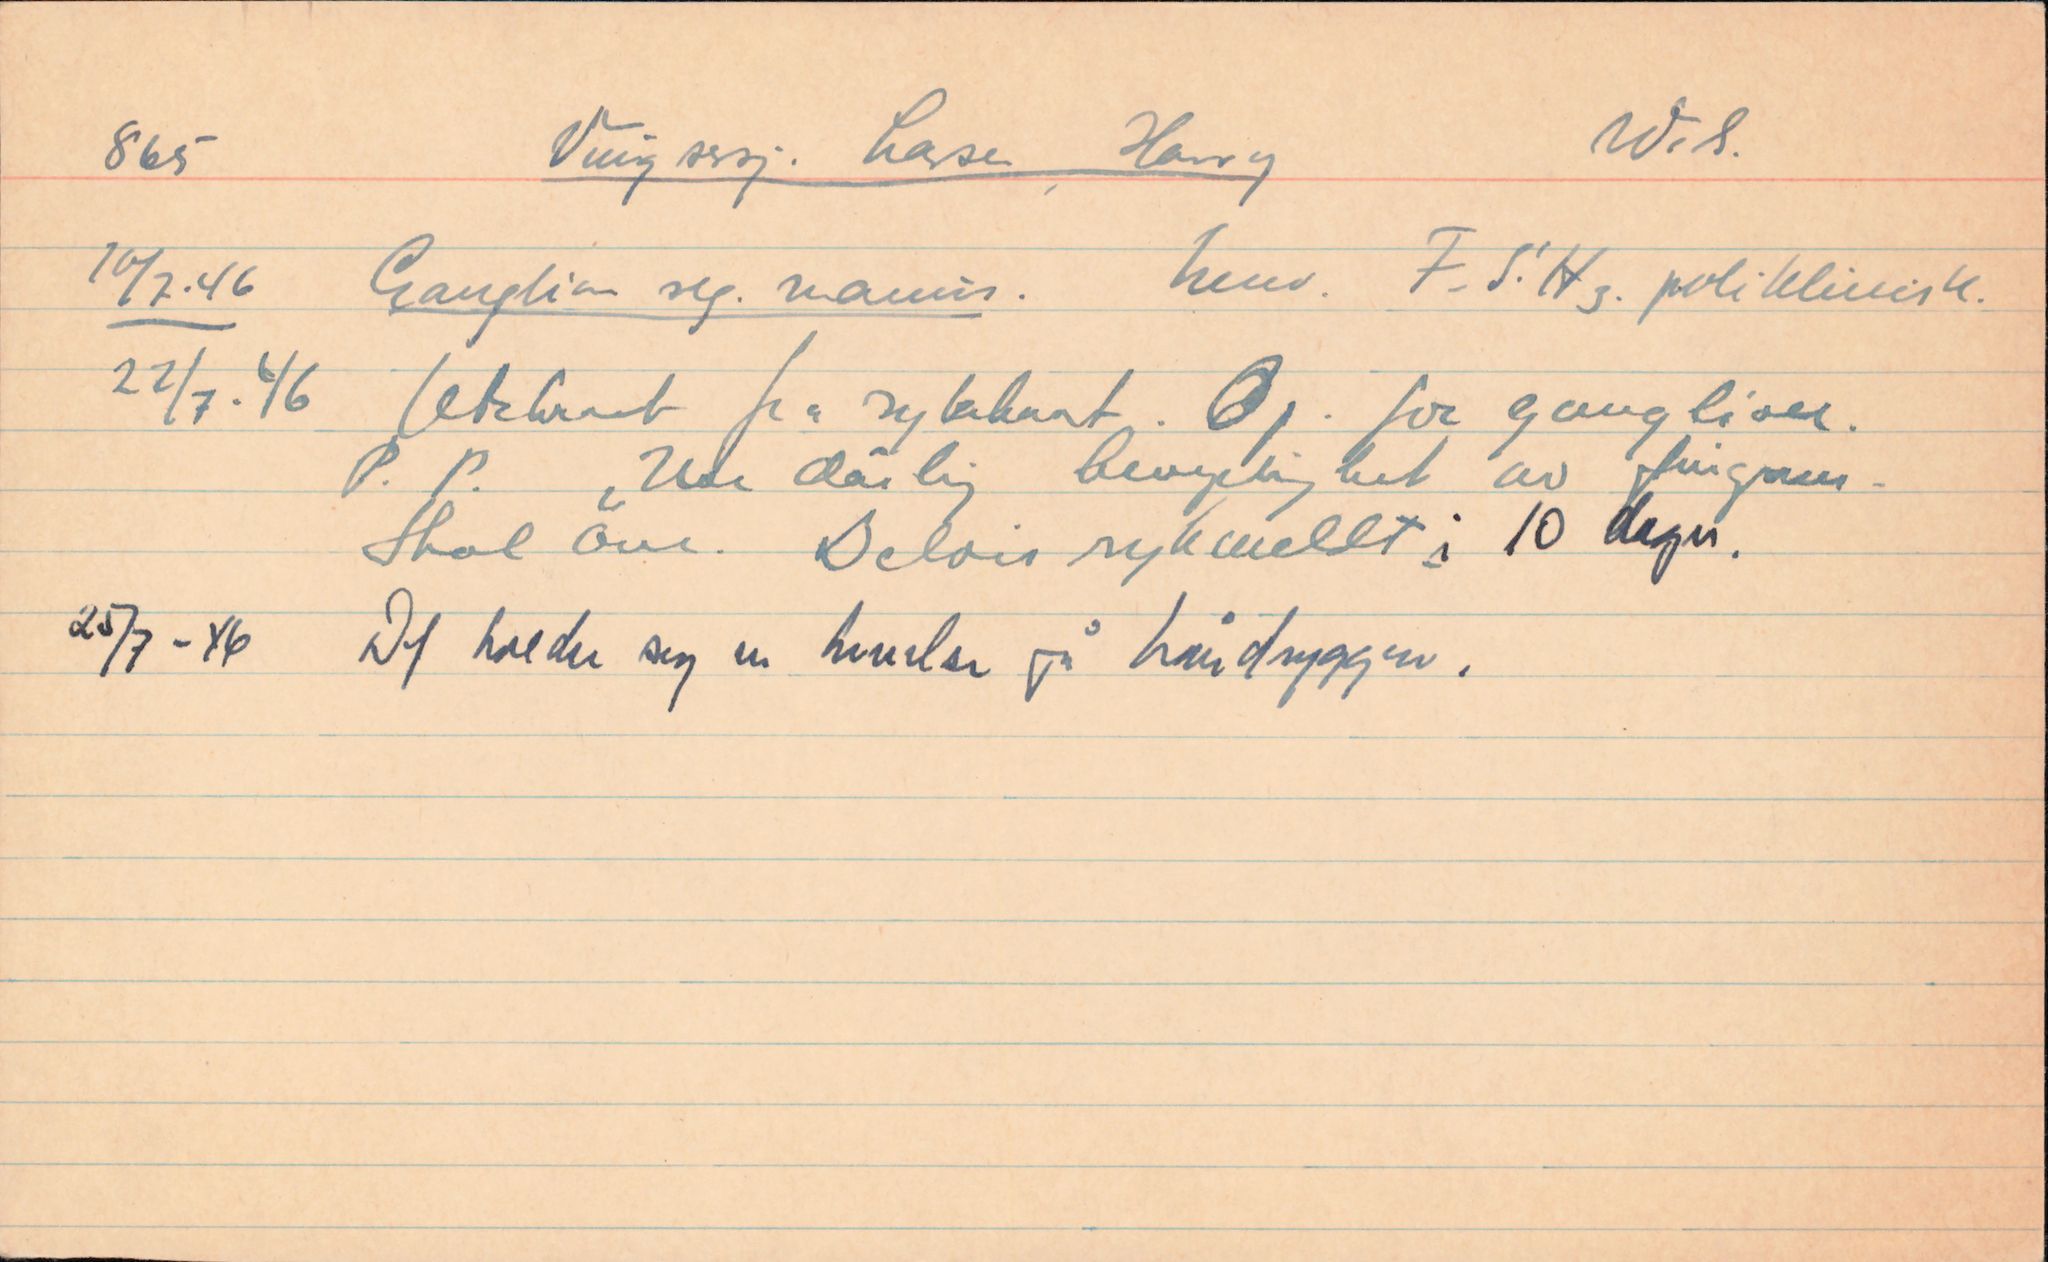 865 Vingsersj. Larsen, Harry W.S.
10/7.46 Ganglion reg. manus. henv. F.S.H 3. poliklinisk.
22/7.46 Utskrevet fra sykehuset. Op. for ganglion.
P.P. Noe dårlig bevegelighet av fingrene.
Skal öve. Delvis sykmeldt i 10 dager.
25/7-46 Det holder seg en hevelse på håndryggen.